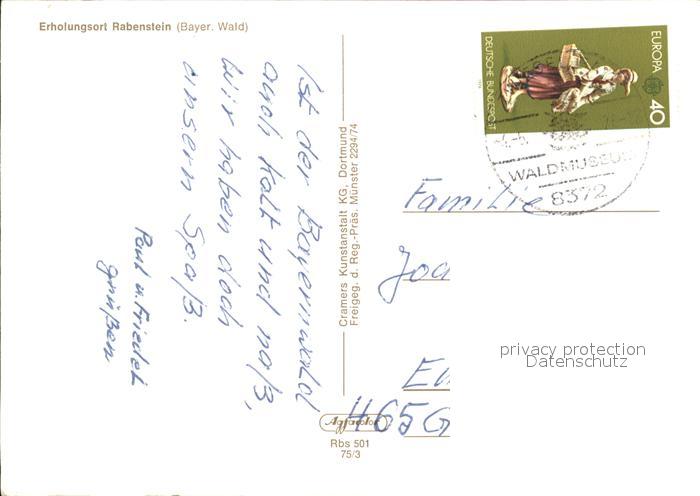 Erholungsort Rabenstein (Bayer. Wald)
Ist der Bayernwald
auch kalt und naß,
wir haben doch
unsern Spaß.
Paul u. Friedel
grüßen
Cramers Kunstanstalt KG, Dortmund
Freigeg. d. Reg.-Präs. Münster 2294/74
Agfacolor
Rbs 501
75/3
EUROPA
40
DEUTSCHE BUNDESPOST
WALDMUSEUM
8372
Familie
465 G
privacy protection
Datenschutz